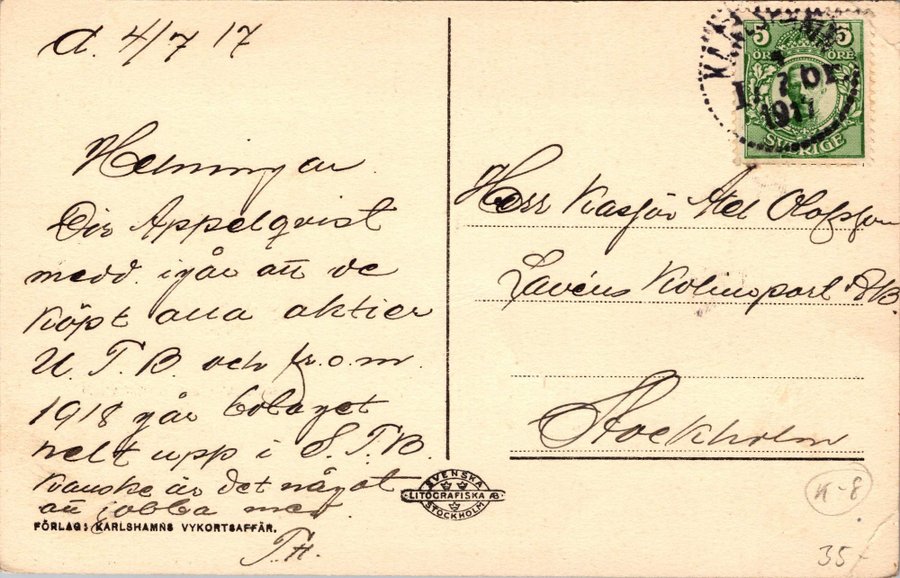 d. 4/7 17
Helsningar
Dir Appelqvist
medd. igår att de
köpt alla aktier
U.T.B. och fr.o.m
1918 går bolaget
helt upp i S.T.B
Kanske är det något
att jobba med.
T.H.
FÖRLAG: KARLSHAMNS VYKORTSAFFÄR.
SVENSKA
LITOGRAFISKA AB
STOCKHOLM
5 5
ÖRE ÖRE
SVERIGE
1917
Herr Kassör Axel Olofsson
Kolimport AB.
Stockholm
K-8
35-